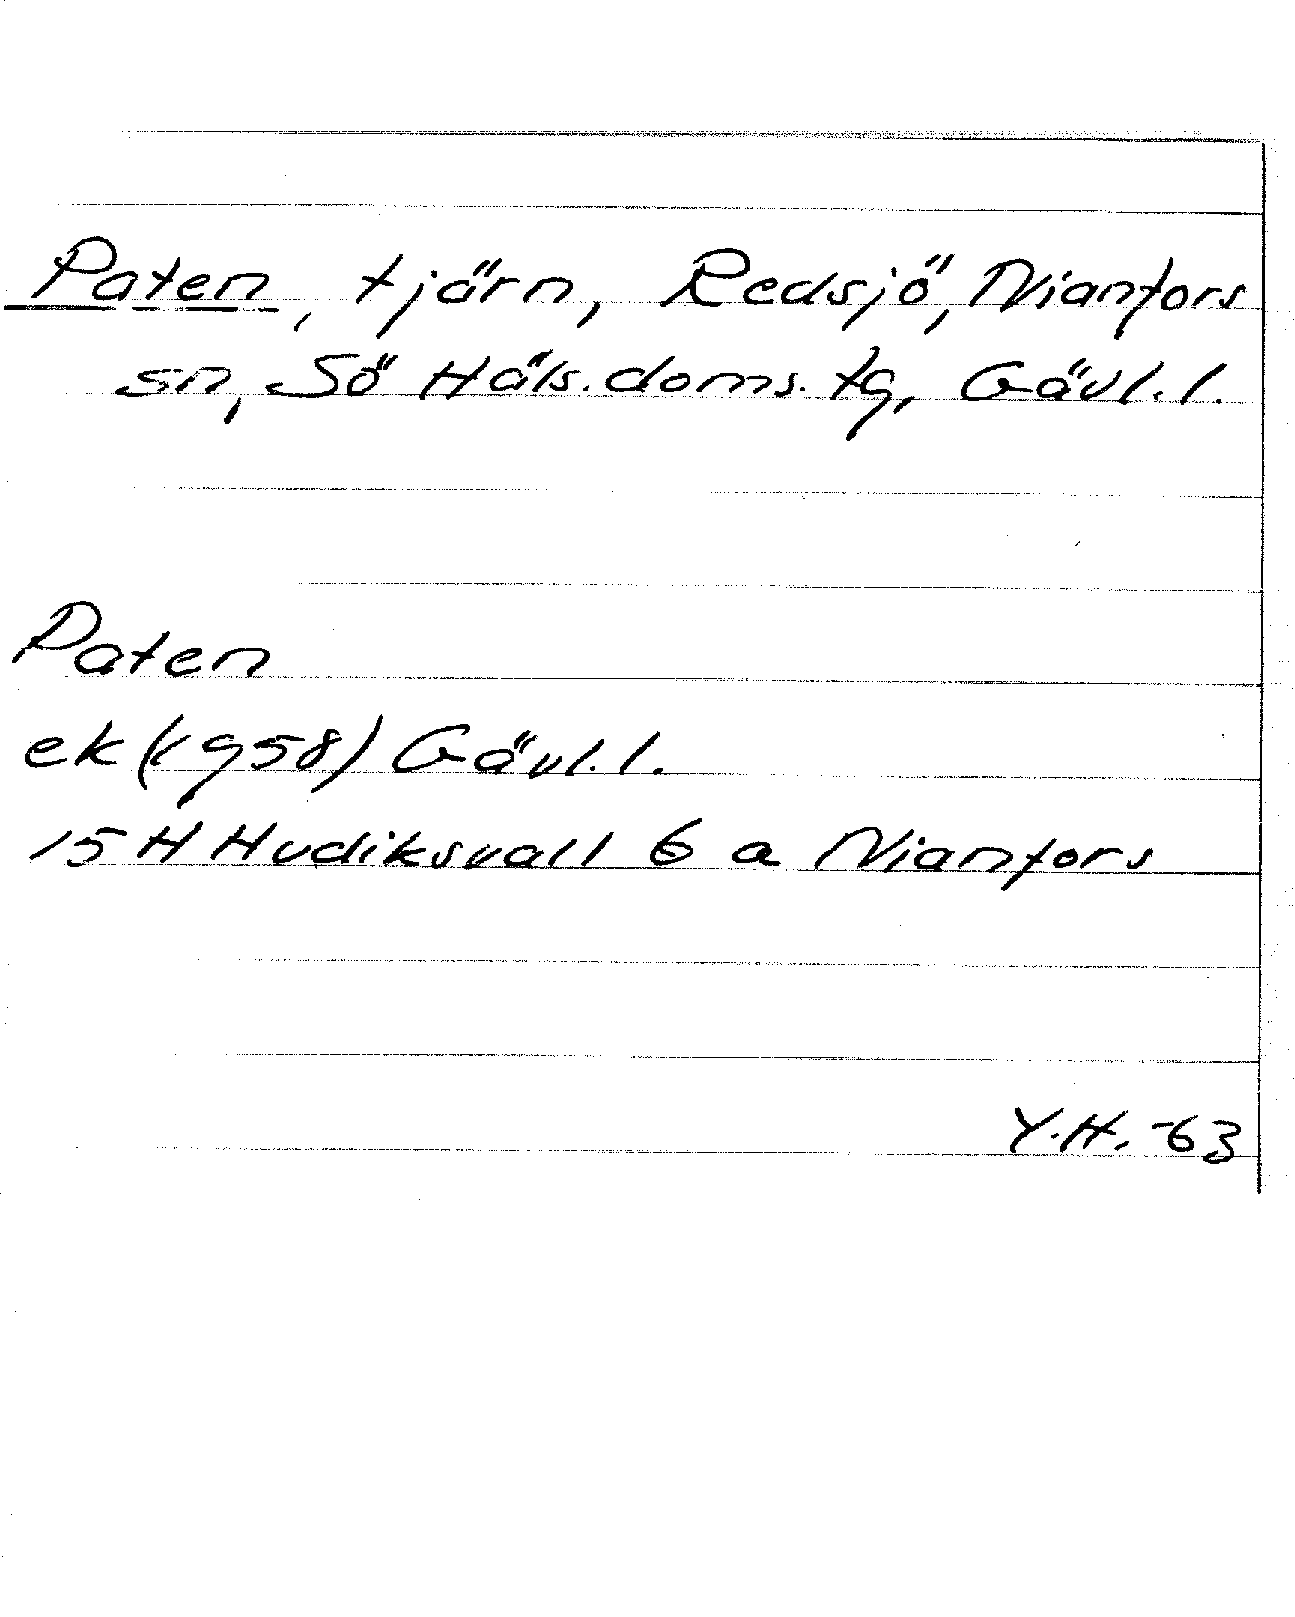 Paten, tjärn, Redsjö, Nianfors
sn, Sö Häls. doms. tg, Gävl. l.
Paten
ek (1958) Gävl. l.
15 H Hudiksvall 6 a Nianfors
Y.H. -63